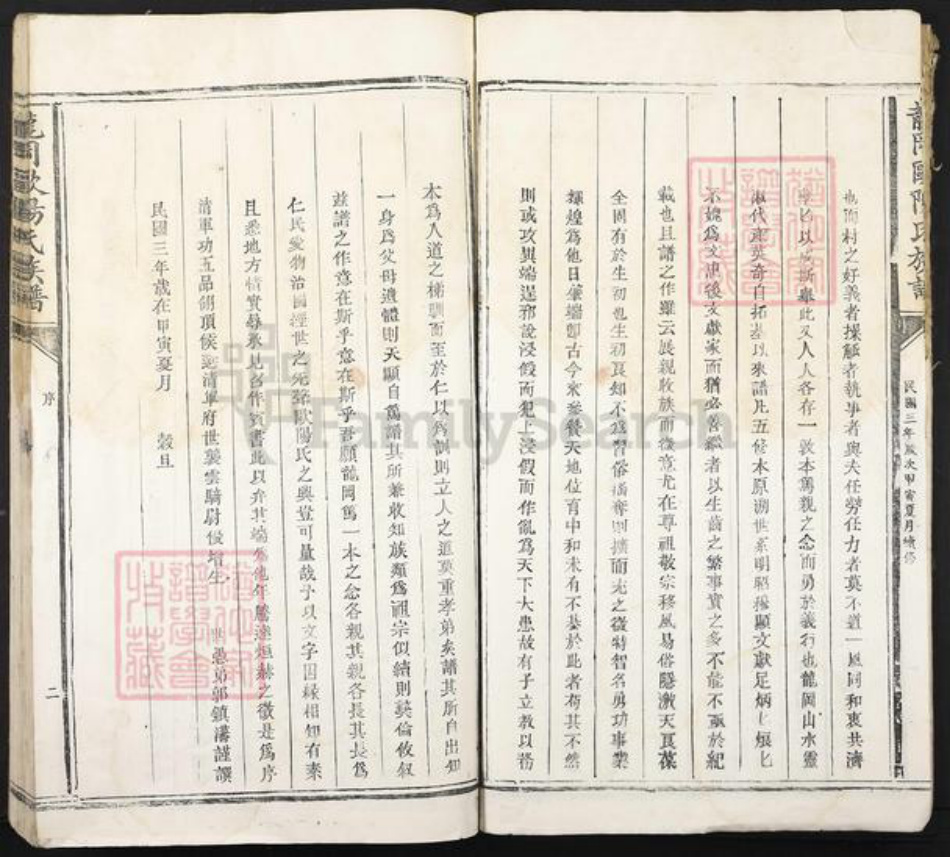 龍岡歐陽氏族譜
民國三年歲次甲寅夏月續修
也而村之好義者操觚者執事者與夫任勞任力者莫不道一風同和衷共濟
以成斯舉此又人人各存一敦本篤親之念而勇於義行也龍岡山水靈
淑代產英奇自拓基以來譜凡五修本原溯世系明昭穆顯文獻足炳匕烺匕
不媿為文忠後文獻家而猶必喜繼者以生齒之繁事實之多不能不亟於紀
載也且譜之作雖云展親收族而微意尤在尊祖敬宗移風易俗隱激天良葆
全固有於生初也生初良知不為習俗攘奪則擴而充之微特智名勇功事業
輝煌為他日肇端即古今來參贊天地位育中和未有不基於此者苟其不然
則或攻異端逞邪說浸假而犯上浸假而作亂為天下大患故有子立教以務
本為人道之梯馴而至於仁以為訓則立人之道莫重孝弟矣譜其所自出知
一身為父母遺體則天顯自篤譜其所兼收知族類為祖宗似續則彝倫攸敘
茲譜之作意在斯乎意在斯乎吾願龍岡篤一本之念各親其親各長其長為
仁民愛物治國經世之先務歐陽氏之興豈可量哉予以文字因緣相知有素
且悉地方情實尋承見召作賓書此以弁其端為他年騰達烜赫之徵是為序
清軍功五品翎頂侯選清軍府世襲雲騎尉優增生 世愚弟郭鎮藩謹譔
民國三年歲在甲寅夏月 穀旦
龍岡歐陽氏族譜
序
二
譜學會
收藏
FamilySearch